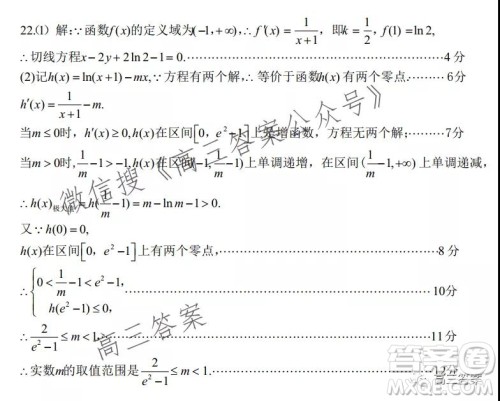 22.(1) 解:∵函数f(x)的定义域为(-1,+∞),∴f'(x)=1/(x+1), 即k=1/2, f(1)=ln2,
∴切线方程x-2y+2ln2-1=0.……4分
(2)记h(x)=ln(x+1)-mx,∵方程有两个解,∴等价于函数h(x)有两个零点……6分
h'(x)=1/(x+1)-m.
当m≤0时, h'(x)≥0,h(x)在区间[0,e²-1]上是增函数, 方程无两个解;……7分
当m>0时, 1/m-1>-1,h(x)在区间(-1,1/m-1)上单调递增, 在区间(1/m-1,+∞)上单调递减,
∴h(x)极大值=h(1/m-1)=m-lnm-1>0.
又∵h(0)=0,
h(x)在区间[0,e²-1]上有两个零点,……8分
∴{0<1/m-1<e²-1, h(e²-1)≤0,……10分
∴2/(e²-1)≤m<1.……11分
∴实数m的取值范围是2/(e²-1)≤m<1.……12分
微信搜《高三答案公众号》
高三答案
答案圈
高三答案